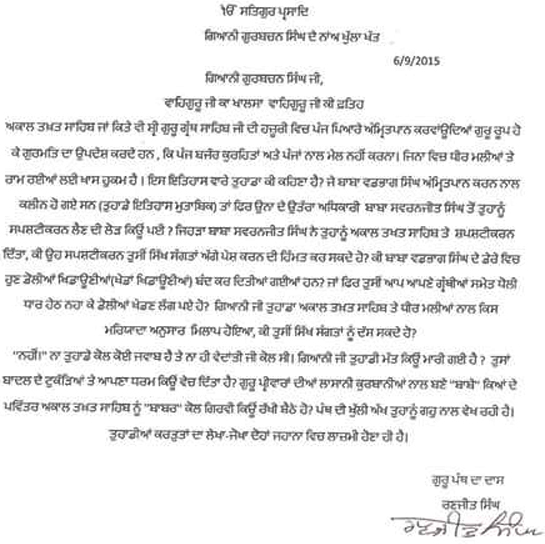 ੴ ਸਤਿਗੁਰ ਪ੍ਰਸਾਦਿ
ਗਿਆਨੀ ਗੁਰਬਚਨ ਸਿੰਘ ਦੇ ਨਾਂਅ ਖੁੱਲਾ ਖੱਤ
6/9/2015
ਗਿਆਨੀ ਗੁਰਬਚਨ ਸਿੰਘ ਜੀ,
ਵਾਹਿਗੁਰੂ ਜੀ ਕਾ ਖਾਲਸਾ ਵਾਹਿਗੁਰੂ ਜੀ ਕੀ ਫ਼ਤਿਹ
ਅਕਾਲ ਤਖ਼ਤ ਸਾਹਿਬ ਜਾਂ ਕਿਤੇ ਵੀ ਸ੍ਰੀ ਗੁਰੂ ਗ੍ਰੰਥ ਸਾਹਿਬ ਜੀ ਦੀ ਹਜ਼ੂਰੀ ਵਿਚ ਪੰਜ ਪਿਆਰੇ ਅੰਮ੍ਰਿਤਪਾਨ ਕਰਵਾਉਂਦਿਆਂ ਗੁਰੂ ਰੂਪ ਹੋ
ਕੇ ਗੁਰਮਤਿ ਦਾ ਉਪਦੇਸ਼ ਕਰਦੇ ਹਨ , ਕਿ ਪੰਜ ਬਜੱਰ ਕੁਰਹਿਤਾਂ ਅਤੇ ਪੰਜਾਂ ਨਾਲ ਮੇਲ ਨਹੀਂ ਕਰਨਾ। ਜਿਨਾ ਵਿਚ ਧੀਰ ਮਲੀਆਂ ਤੇ
ਰਾਮ ਰਈਆਂ ਲਈ ਖਾਸ ਹੁਕਮ ਹੈ । ਇਸ ਇਤਿਹਾਸ ਵਾਰੇ ਤੁਹਾਡਾ ਕੀ ਕਹਿਣਾ ਹੈ? ਜੇ ਬਾਬਾ ਵਡਭਾਗ ਸਿੰਘ ਅੰਮ੍ਰਿਤਪਾਨ ਕਰਨ ਨਾਲ
ਕਲੀਨ ਹੋ ਗਏ ਸਨ (ਤੁਹਾਡੇ ਇਤਿਹਾਸ ਮੁਤਾਬਿਕ) ਤਾਂ ਫਿਰ ਉਨਾ ਦੇ ਉਤੱਰਾ ਅਧਿਕਾਰੀ ਬਾਬਾ ਸਵਰਨਜੀਤ ਸਿੰਘ ਤੋਂ ਤੁਹਾਨੂੰ
ਸਪਸ਼ਟੀਕਰਨ ਲੈਣ ਦੀ ਲੋੜ ਕਿਉਂ ਪਈ ? ਜਿਹੜਾ ਬਾਬਾ ਸਵਰਨਜੀਤ ਸਿੰਘ ਨੇ ਤੁਹਾਨੂੰ ਅਕਾਲ ਤਖਤ ਸਾਹਿਬ ਤੇ ਸਪਸ਼ਟੀਕਰਨ
ਦਿੱਤਾ, ਕੀ ਉਹ ਸਪਸ਼ਟੀਕਰਨ ਤੁਸੀਂ ਸਿੱਖ ਸੰਗਤਾਂ ਅੱਗੇ ਪੇਸ਼ ਕਰਨ ਦੀ ਹਿੰਮਤ ਕਰ ਸਕਦੇ ਹੋ? ਕੀ ਬਾਬਾ ਵਡਭਾਗ ਸਿੰਘ ਦੇ ਡੇਰੇ ਵਿਚ
ਹੁਣ ਡੋਲੀਆਂ ਖਿਡਾਉਣੀਆਂ(ਖੇਡਾਂ ਖਿਡਾਉਣੀਆਂ) ਬੰਦ ਕਰ ਦਿਤੀਆਂ ਗਈਆਂ ਹਨ? ਜਾਂ ਫਿਰ ਤੁਸੀਂ ਆਪ ਆਪਣੇ ਗ੍ਰੰਥੀਆਂ ਸਮੇਤ ਧੌਲੀ
ਧਾਰ ਹੇਠ ਨਹਾ ਕੇ ਡੋਲੀਆਂ ਖੇਡਣ ਲੱਗ ਪਏ ਹੋ? ਗਿਆਨੀ ਜੀ ਤੁਹਾਡਾ ਅਕਾਲ ਤਖ਼ਤ ਸਾਹਿਬ ਤੇ ਧੀਰ ਮਲੀਆਂ ਨਾਲ ਕਿਸ
ਮਰਿਯਾਦਾ ਅਨੁਸਾਰ ਮਿਲਾਪ ਹੋਇਆ, ਕੀ ਤੁਸੀਂ ਸਿੱਖ ਸੰਗਤਾਂ ਨੂੰ ਦੱਸ ਸਕਦੇ ਹੋ?
"ਨਹੀਂ।" ਨਾ ਤੁਹਾਡੇ ਕੋਲ ਕੋਈ ਜਵਾਬ ਹੈ ਤੇ ਨਾ ਹੀ ਵੇਦਾਂਤੀ ਜੀ ਕੋਲ ਸੀ। ਗਿਆਨੀ ਜੀ ਤੁਹਾਡੀ ਮੱਤ ਕਿਉਂ ਮਾਰੀ ਗਈ ਹੈ ? ਤੁਸਾਂ
ਬਾਦਲ ਦੇ ਟੁਕੜਿਆਂ ਤੇ ਆਪਣਾ ਧਰਮ ਕਿਉਂ ਵੇਚ ਦਿੱਤਾ ਹੈ? ਗੁਰੂ ਪ੍ਰੀਵਾਰਾਂ ਦੀਆਂ ਲਾਸਾਨੀ ਕੁਰਬਾਨੀਆਂ ਨਾਲ ਬਣੇ "ਬਾਬੇ" ਕਿਆਂ ਦੇ
ਪਵਿੱਤਰ ਅਕਾਲ ਤਖ਼ਤ ਸਾਹਿਬ ਨੂੰ "ਬਾਬਰ" ਕੋਲ ਗਿਰਵੀ ਕਿਉਂ ਰੱਖੀ ਬੈਠੇ ਹੋ? ਪੰਥ ਦੀ ਖੁੱਲੀ ਅੱਖ ਤੁਹਾਨੂੰ ਗਹੁ ਨਾਲ ਵੇਖ ਰਹੀ ਹੈ।
ਤੁਹਾਡੀਆਂ ਕਰਤੂਤਾਂ ਦਾ ਲੇਖਾ-ਜੋਖਾ ਦੋਹਾਂ ਜਹਾਨਾ ਵਿਚ ਲਾਜ਼ਮੀ ਹੋਣਾ ਹੀ ਹੈ।
ਗੁਰੂ ਪੰਥ ਦਾ ਦਾਸ
ਰਣਜੀਤ ਸਿੰਘ
ਰਣਜੀਤ ਸਿੰਘ